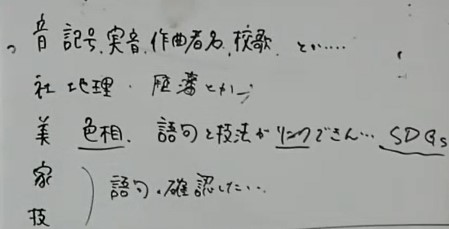 音 記号、実音、作曲者名、校歌、とか……
社 地理・歴史とか…
美 色相、語句と技法がリンクできん… SDGs
家
技
語句・確認したい…